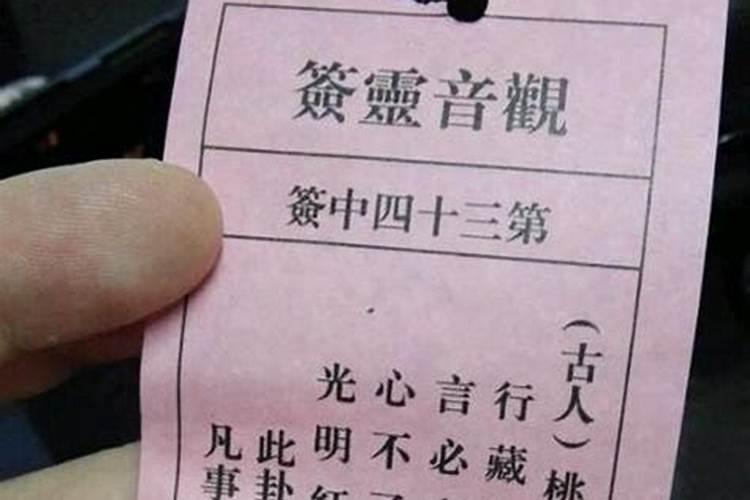 觀音靈簽
第三十四中簽
（古人）桃
行藏
言必
心不
光明
此卦
凡事